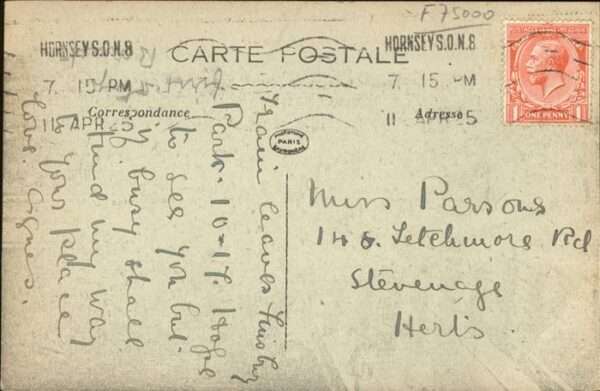 F75000
HORNSEY S.O.N.8
7. 15 PM
11 APR 25
CARTE POSTALE
HORNSEY S.O.N.8
7. 15 PM
11 APR 25
ONE PENNY
Correspondance
Adresse
PARIS
Train leaves Finsbry
Park. 10-17. Hope
to see you but
if busy shall
find my way
to your place
love. Agnes.
Miss Parsons
146. Letchmore Rd
Stevenage
Herts